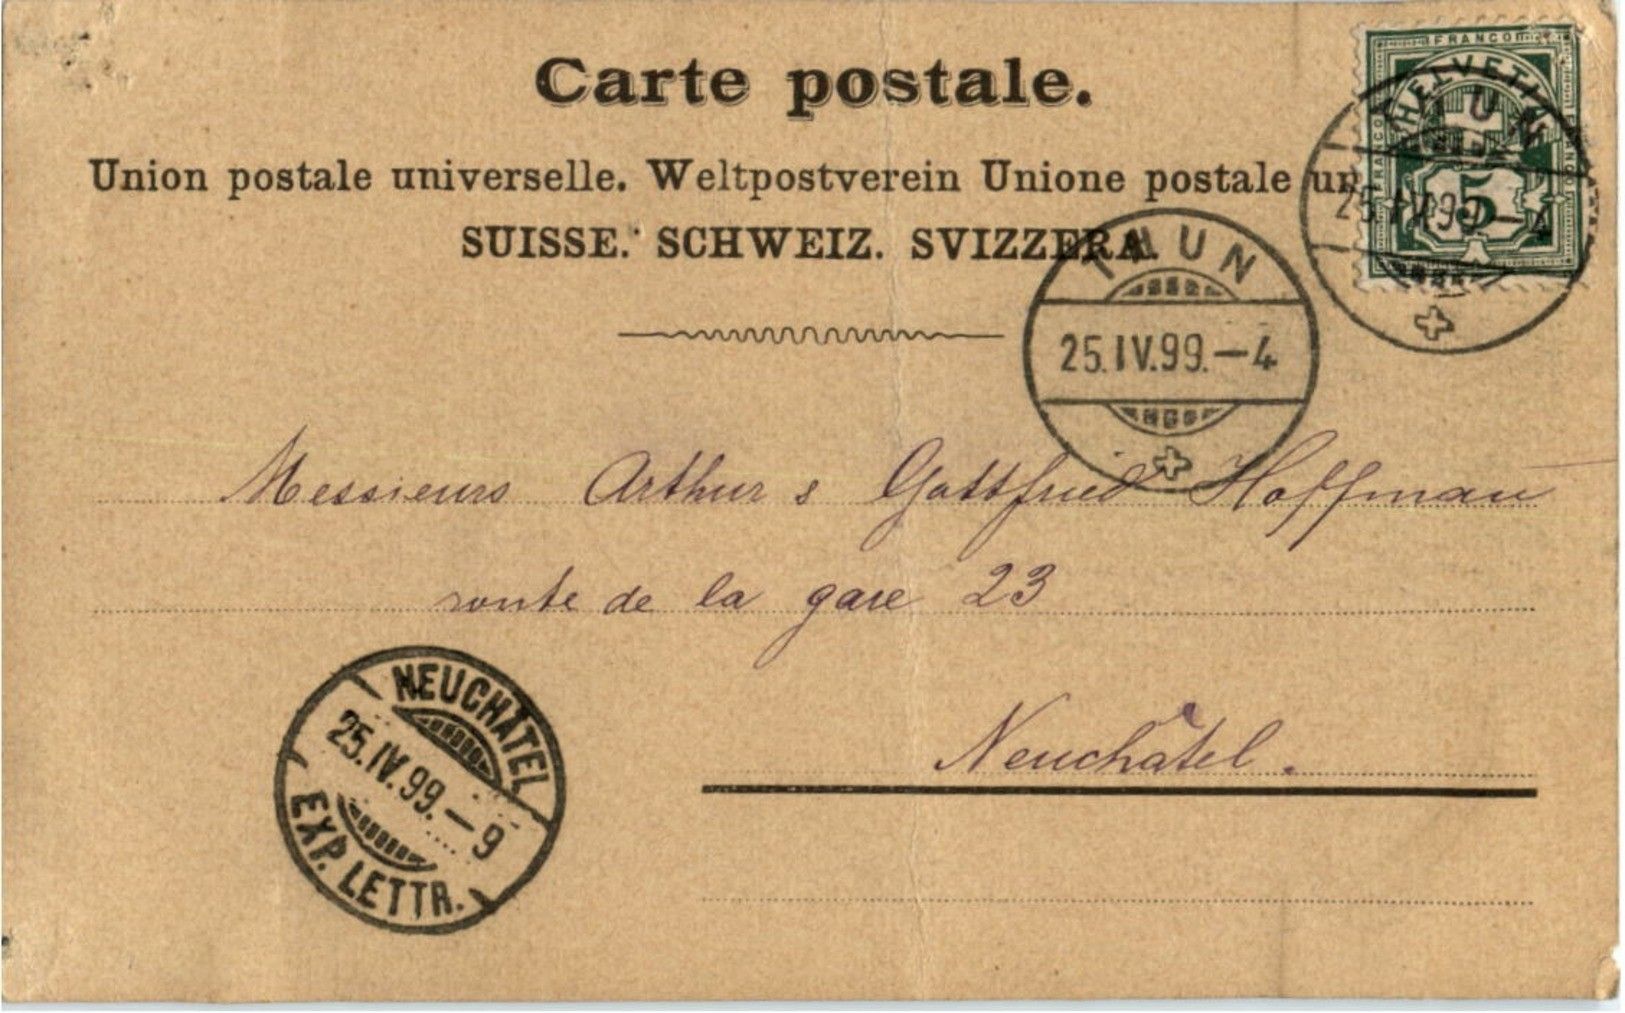 Carte postale.
FRANCO
HELVETIA
FRANCO
5
THUN
25.IV.99.–4
Union postale universelle. Weltpostverein Unione postale un
SUISSE. SCHWEIZ. SVIZZERA.
THUN
25.IV.99.–4
Messieurs Arthur & Gottfried Hoffman
route de la gare 23
Neuchâtel.
NEUCHÂTEL
25.IV.99.–9
EXP. LETTR.